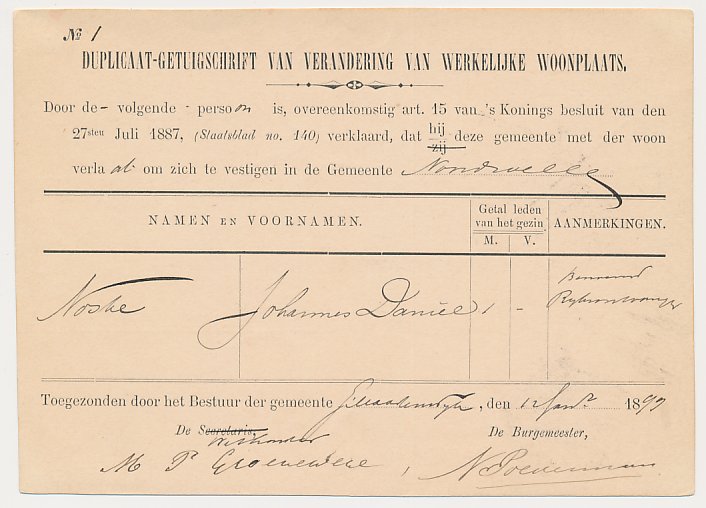 № 1
DUPLICAAT-GETUIGSCHRIFT VAN VERANDERING VAN WERKELIJKE WOONPLAATS.
Door de - volgende - persoon is, overeenkomstig art. 15 van 's Konings besluit van den
27sten Juli 1887, (Staatsblad no. 140) verklaard, dat hij zij deze gemeente met der woon
verlaat om zich te vestigen in de Gemeente
NAMEN EN VOORNAMEN.
Getal leden van het gezin
M. V.
AANMERKINGEN.
Noske Johannes Daniël 1 - Benoemd
Rijksontvanger
Toegezonden door het Bestuur der gemeente , den 12 Jan 1897
De Secretaris, De Burgemeester,
Wethouder
M P Groenewege